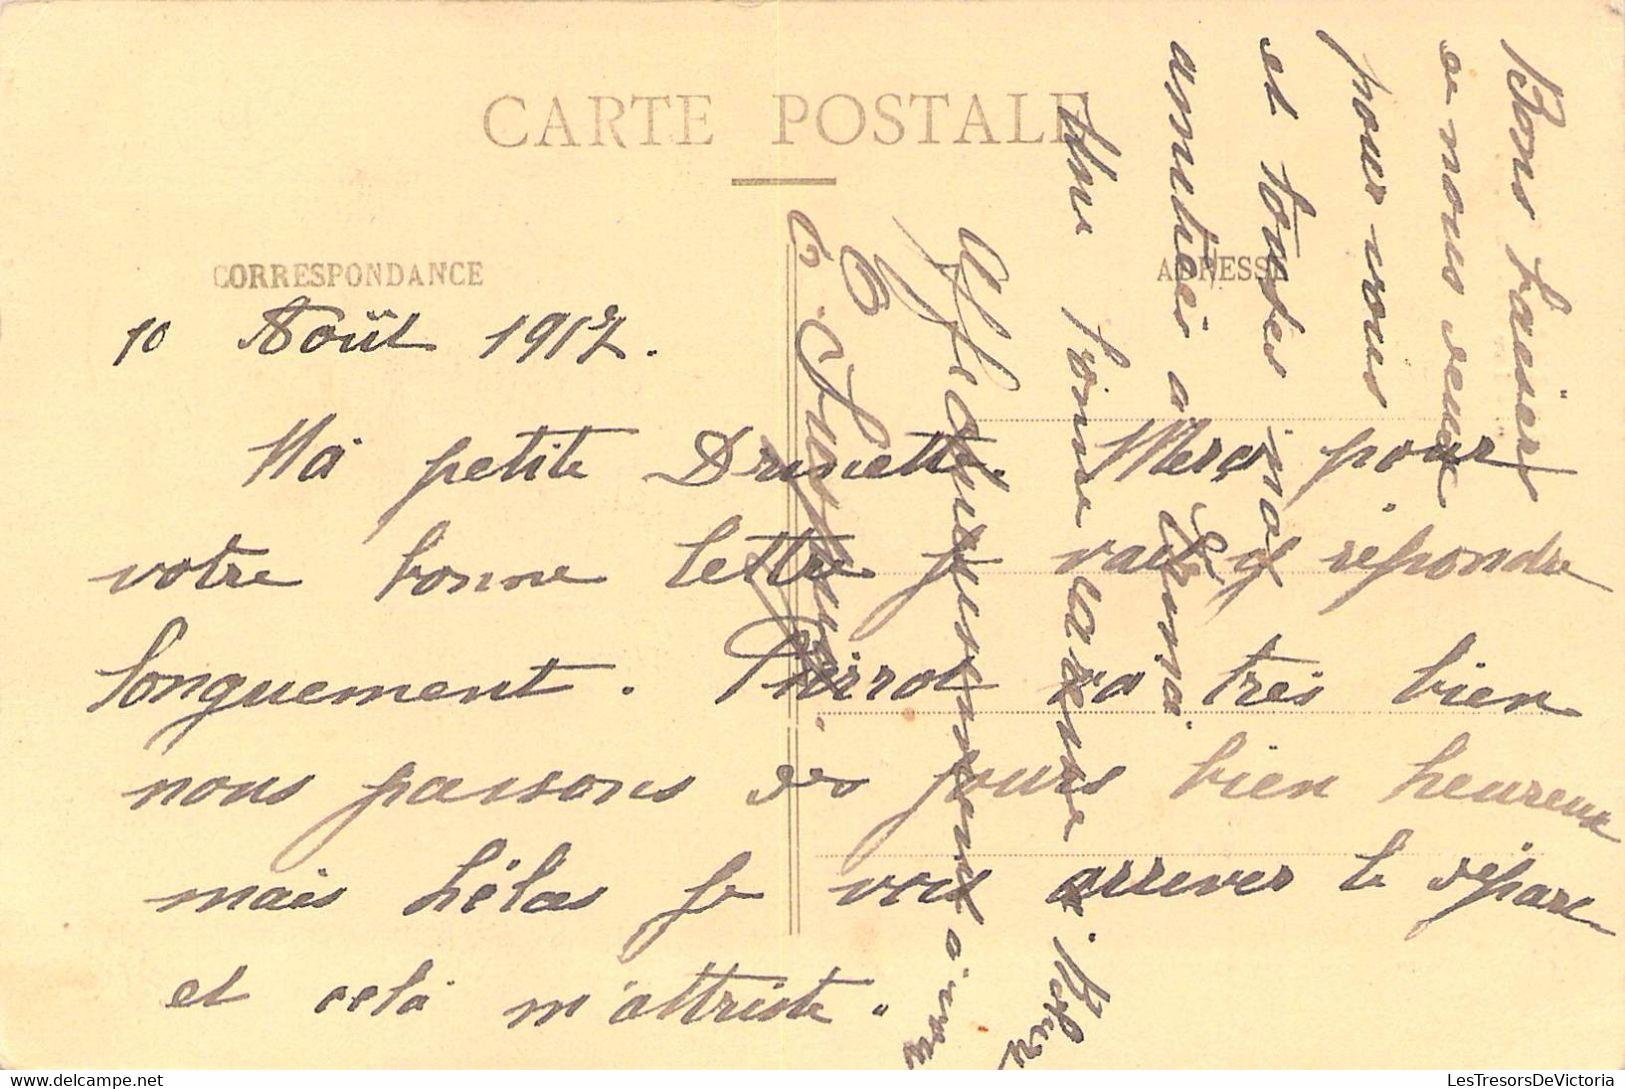 CARTE POSTALE
CORRESPONDANCE
ADRESSE
10 Août 1917.
Ma petite Brunette. Merci pour
votre bonne lettre je vais y répondre
longuement. Pierrot va très bien
nous passons des jours bien heureux
mais hélas je vois arriver le départ
et celà m'attriste.
Bons baisers
de nous deux
pour vous
et toutes mes
amitiés à
Une bonne caresse à
Affectueusement à vous
LesTresorsDeVictoria